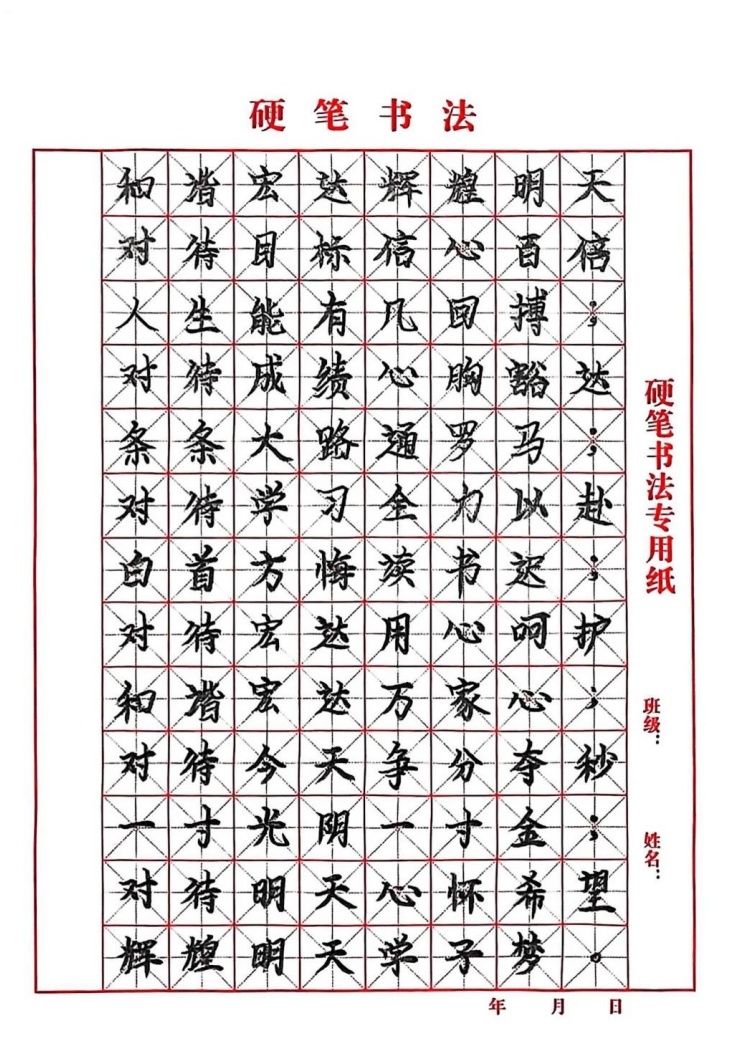 硬笔书法
和谐宏达辉煌明天
对待目标信心百倍
人生能有几回搏；
对待成绩心胸豁达
条条大路通罗马；
对待学习全力以赴
白首方悔读书迟；
对待宏达用心呵护
和谐宏达万家心；
对待今天争分夺秒
一寸光阴一寸金；
对待明天心怀希望
辉煌明天学子梦。
硬笔书法专用纸
班级：
姓名：
年 月 日